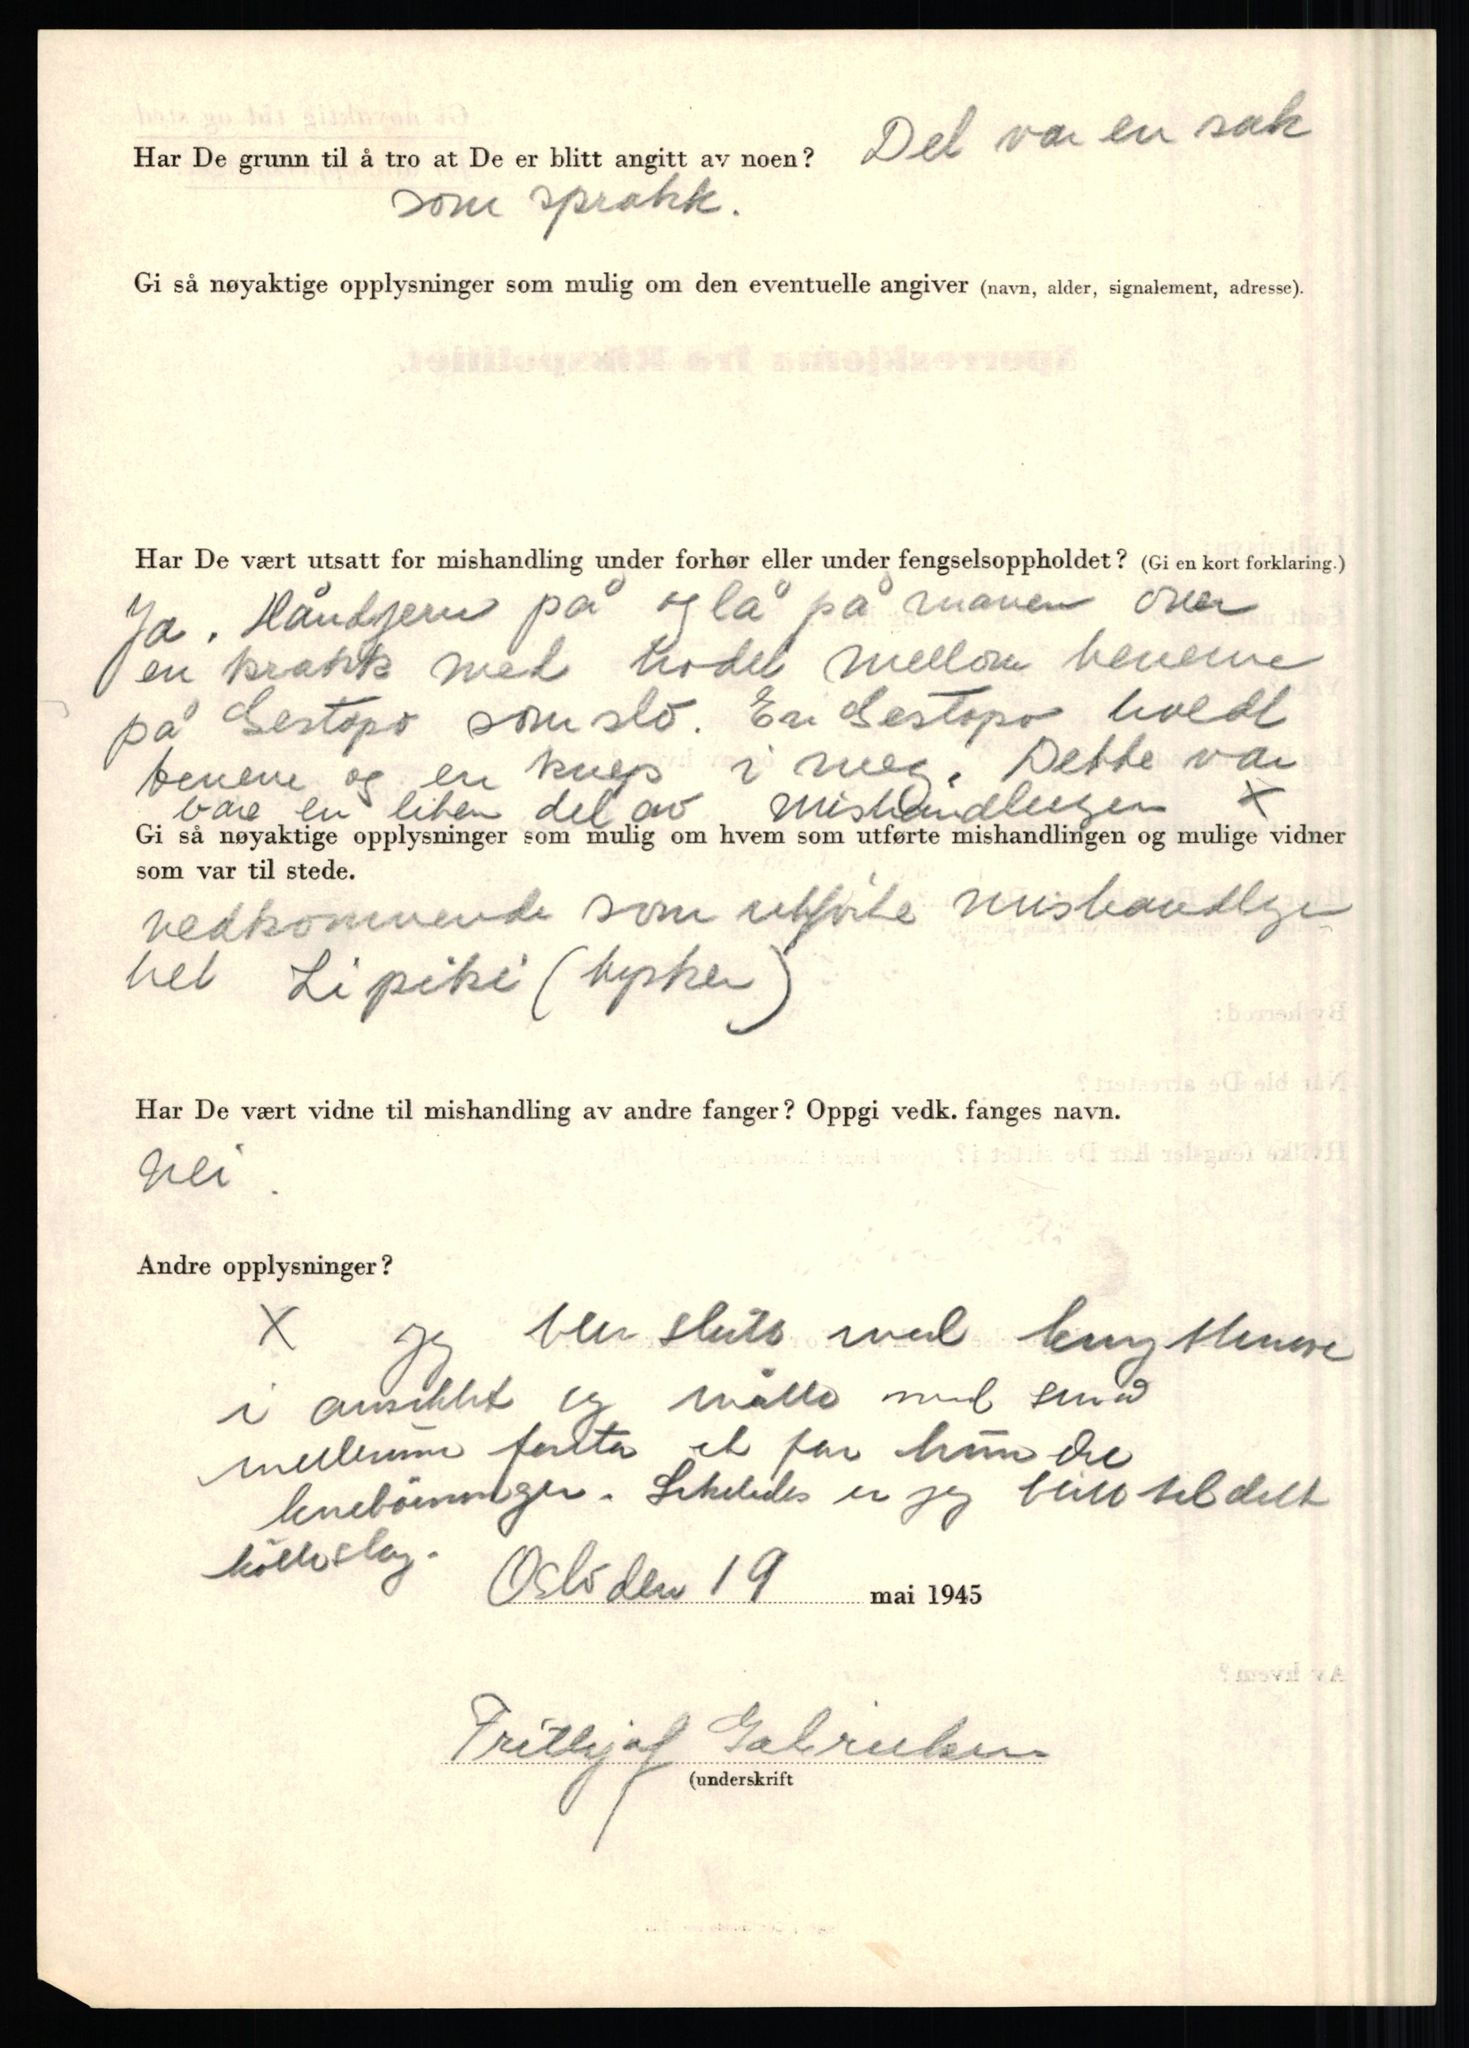 Har De grunn til å tro at De er blitt angitt av noen? Det var en sak
som sprakk.
Gi så nøyaktige opplysninger som mulig om den eventuelle angiver (navn, alder, signalement, adresse).
Har De vært utsatt for mishandling under forhør eller under fengselsoppholdet? (Gi en kort forklaring.)
Ja. Håndjern på og lå på maven over
en krakk med hodet mellom benene
på Gestapo som slo. En Gestapo holdt
benene og en knep i meg. Dette var
bare en liten del av mishandlingen X
Gi så nøyaktige opplysninger som mulig om hvem som utførte mishandlingen og mulige vidner
som var til stede.
vedkommende som utførte mishandlingen
het Lipiki (tysker)
Har De vært vidne til mishandling av andre fanger? Oppgi vedk. fanges navn.
Nei.
Andre oppl­ysninger?
X jeg blev slått med knyttneve
i ansiktet og måtte med små
mellemrum foreta et par hundre
knebøininger. Likeledes er jeg blitt tildelt
kølleslag.
Oslo den 19 mai 1945
Frithjof Gabrielsen
(underskrift